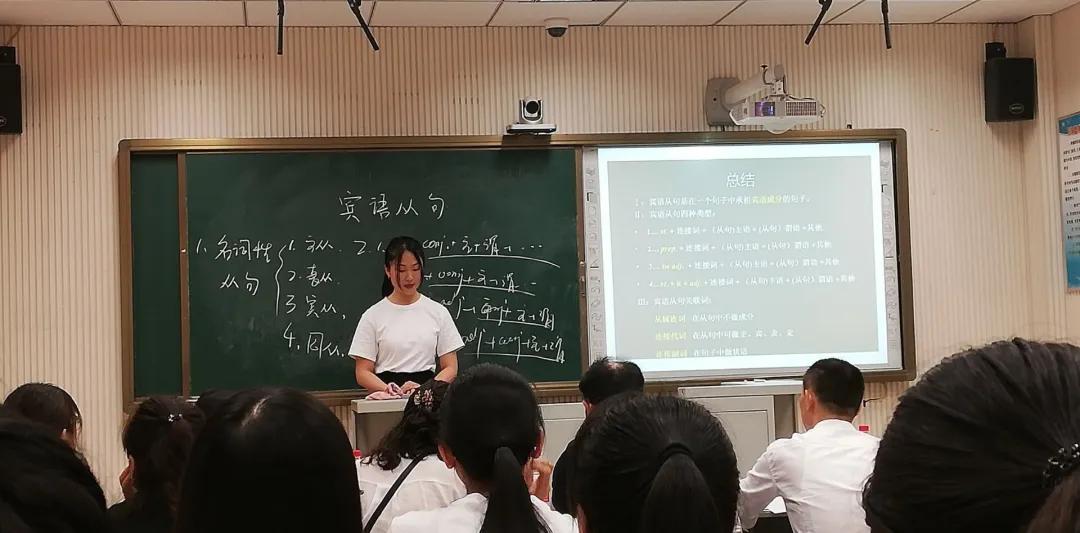 宾语从句
1、名词性从句
1. 主从.
2. 表从.
3 宾从.
4. 同从.
2. 1.
conj. + 主 + 谓 + ...
+ conj + 主 + 谓 ...
adj + conj + 主 + 谓
adj + conj + 主 + 谓
总结
I: 宾语从句是在一个句子中承担宾语成分的句子。
II: 宾语从句四种类型:
• 1... vt. + 连接词 + (从句)主语 + (从句) 谓语 +其他
• 2... prep. + 连接词 + (从句)主语 + (从句) 谓语 +其他
• 3... be adj. + 连接词 + (从句)主语 + (从句) 谓语 +其他
• 4... vt. + it + adj. + 连接词 + (从句)主语 + (从句) 谓语 +其他
III: 宾语从句关联词:
从属连词 在从句中不做成分
连接代词 在从句中可做主、宾、表、定
连接副词 在句子中做状语